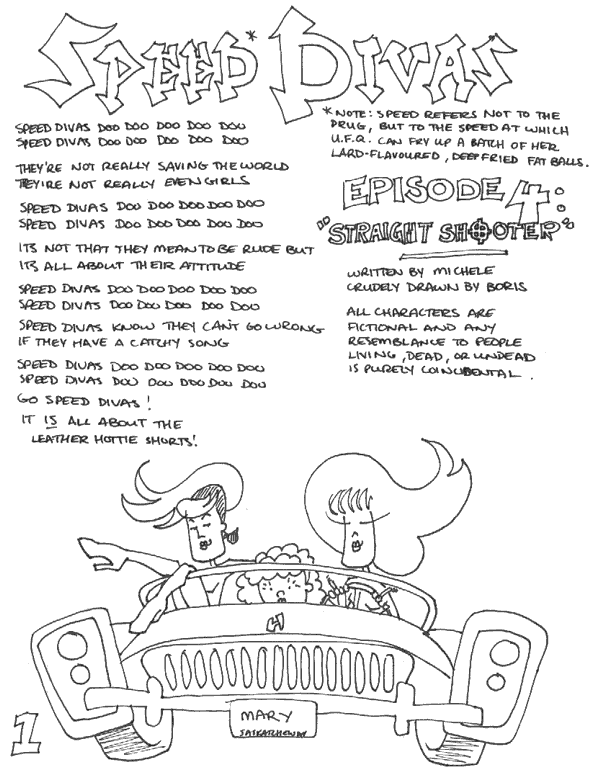 SPEED* DIVAS
SPEED DIVAS DOO DOO DOO DOO DOO
SPEED DIVAS DOO DOO DOO DOO DOO
THEY'RE NOT REALLY SAVING THE WORLD
THEY'RE NOT REALLY EVEN GIRLS
SPEED DIVAS DOO DOO DOO DOO DOO
SPEED DIVAS DOO DOO DOO DOO DOO
ITS NOT THAT THEY MEAN TO BE RUDE BUT
ITS ALL ABOUT THEIR ATTITUDE
SPEED DIVAS DOO DOO DOO DOO DOO
SPEED DIVAS DOO DOO DOO DOO DOO
SPEED DIVAS KNOW THEY CAN'T GO WRONG
IF THEY HAVE A CATCHY SONG
SPEED DIVAS DOO DOO DOO DOO DOO
SPEED DIVAS DOO DOO DOO DOO DOO
GO SPEED DIVAS!
IT IS ALL ABOUT THE
LEATHER HOTTIE SHORTS!
*NOTE: SPEED REFERS NOT TO THE
DRUG, BUT TO THE SPEED AT WHICH
U.F.Q. CAN FRY UP A BATCH OF HER
LARD-FLAVOURED, DEEP FRIED FAT BALLS.
EPISODE 4:
"STRAIGHT SHOOTER"
WRITTEN BY MICHELE
CRUDELY DRAWN BY BORIS
ALL CHARACTERS ARE
FICTIONAL AND ANY
RESEMBLANCE TO PEOPLE
LIVING, DEAD, OR UNDEAD
IS PURELY COINCIDENTAL.
MARY
1